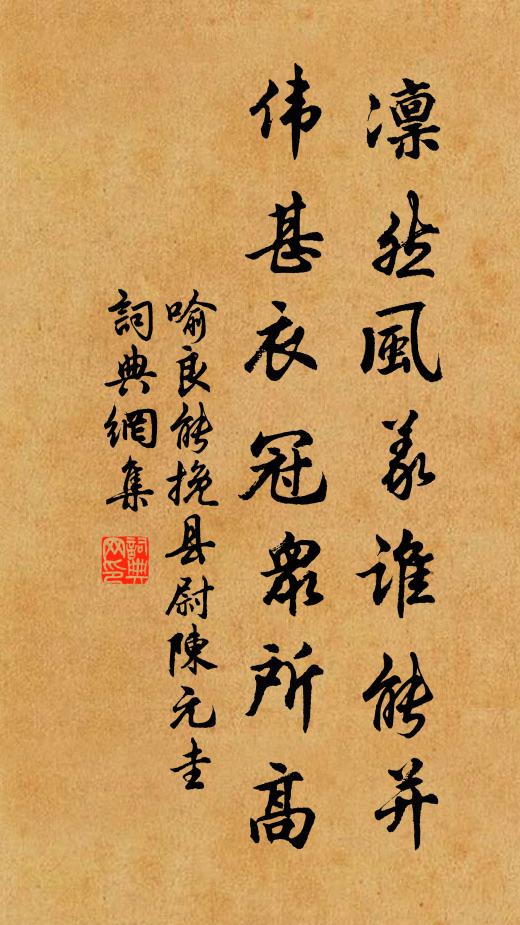 凛然風義谁能并
伟甚衣冠眾所高
喻良能挽县尉陳元圭
詞典網集
詞典網印